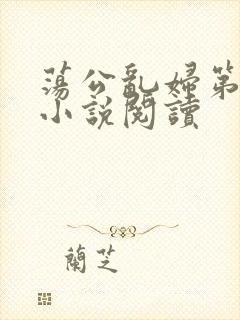 蕩公亂婦第
小說閱讀
蘭芝